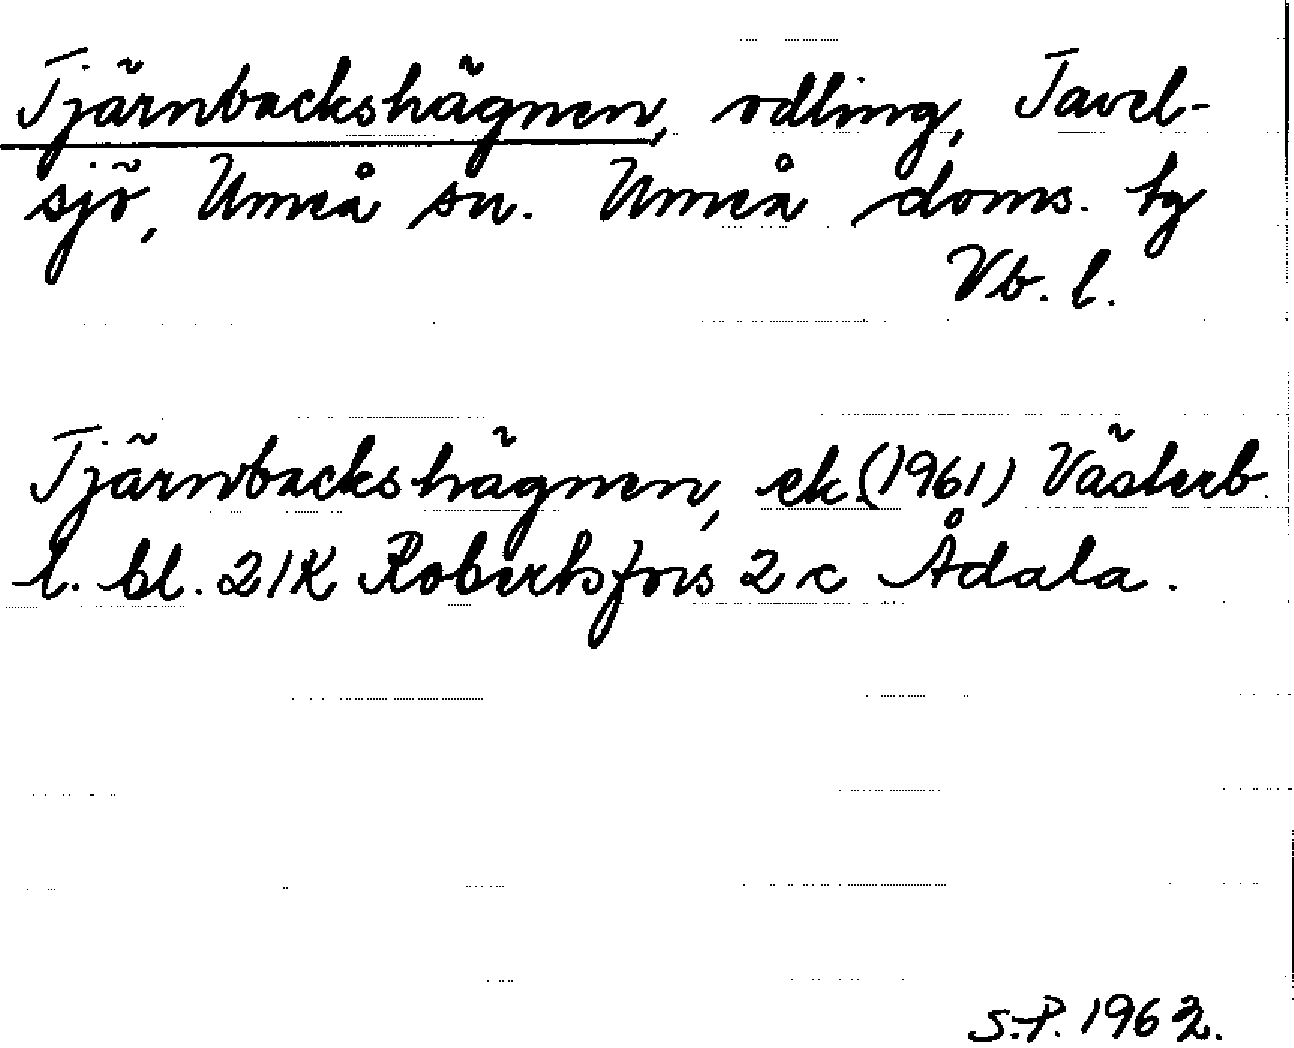 Tjärnbackshägnen, odling, Tavel-
sjö, Umeå sn. Umeå doms. tg
Vb. l.
Tjärnbackshägnen, ek. (1961) Västerb.
l. bl. 21K Robertsfors 2 c Ådala.
S.P. 1962.